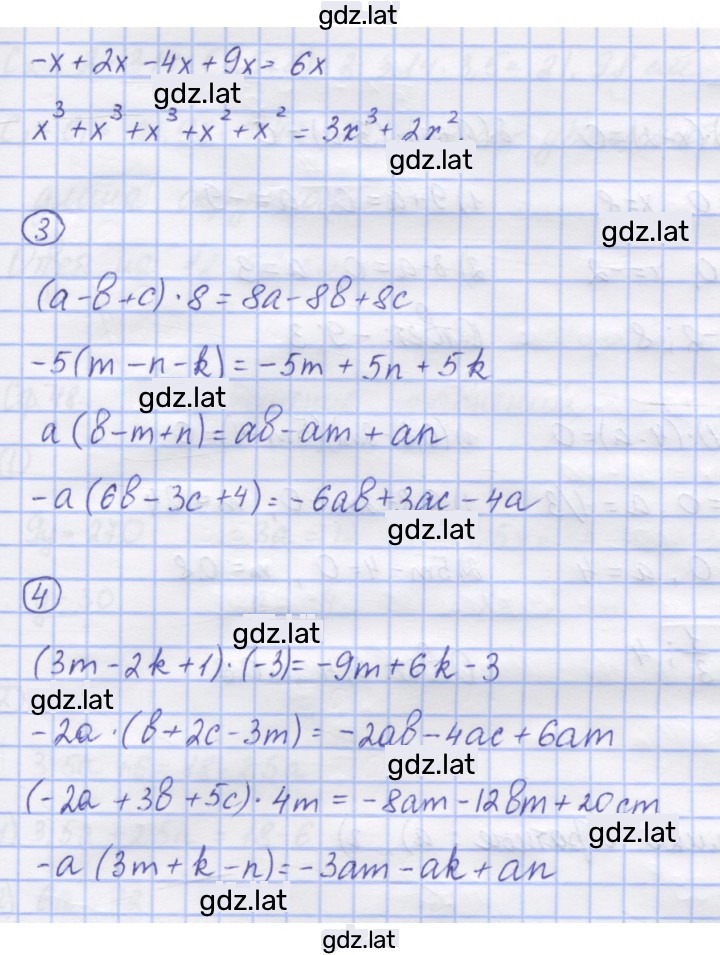 gdz.lat
-x + 2x - 4x + 9x = 6x
gdz.lat
x³ + x³ + x³ + x² + x² = 3x³ + 2x².
gdz.lat
③
gdz.lat
(а - в + с) · 8 = 8а - 8в + 8с
-5(m - n - k) = -5m + 5n + 5k
gdz.lat
а (в - m + n) = ав - аm + аn
-а (6в - 3с + 4) = -6ав + 3ас - 4а
gdz.lat
④
gdz.lat
(3m - 2k + 1) · (-3) = -9m + 6k - 3
gdz.lat
-2а · (в + 2с - 3m) = -2ав - 4ас + 6аm
gdz.lat
(-2а + 3в + 5с) · 4m = -8аm - 12вm + 20сm
gdz.lat
-а (3m + k - n) = -3аm - аk + аn
gdz.lat
gdz.lat